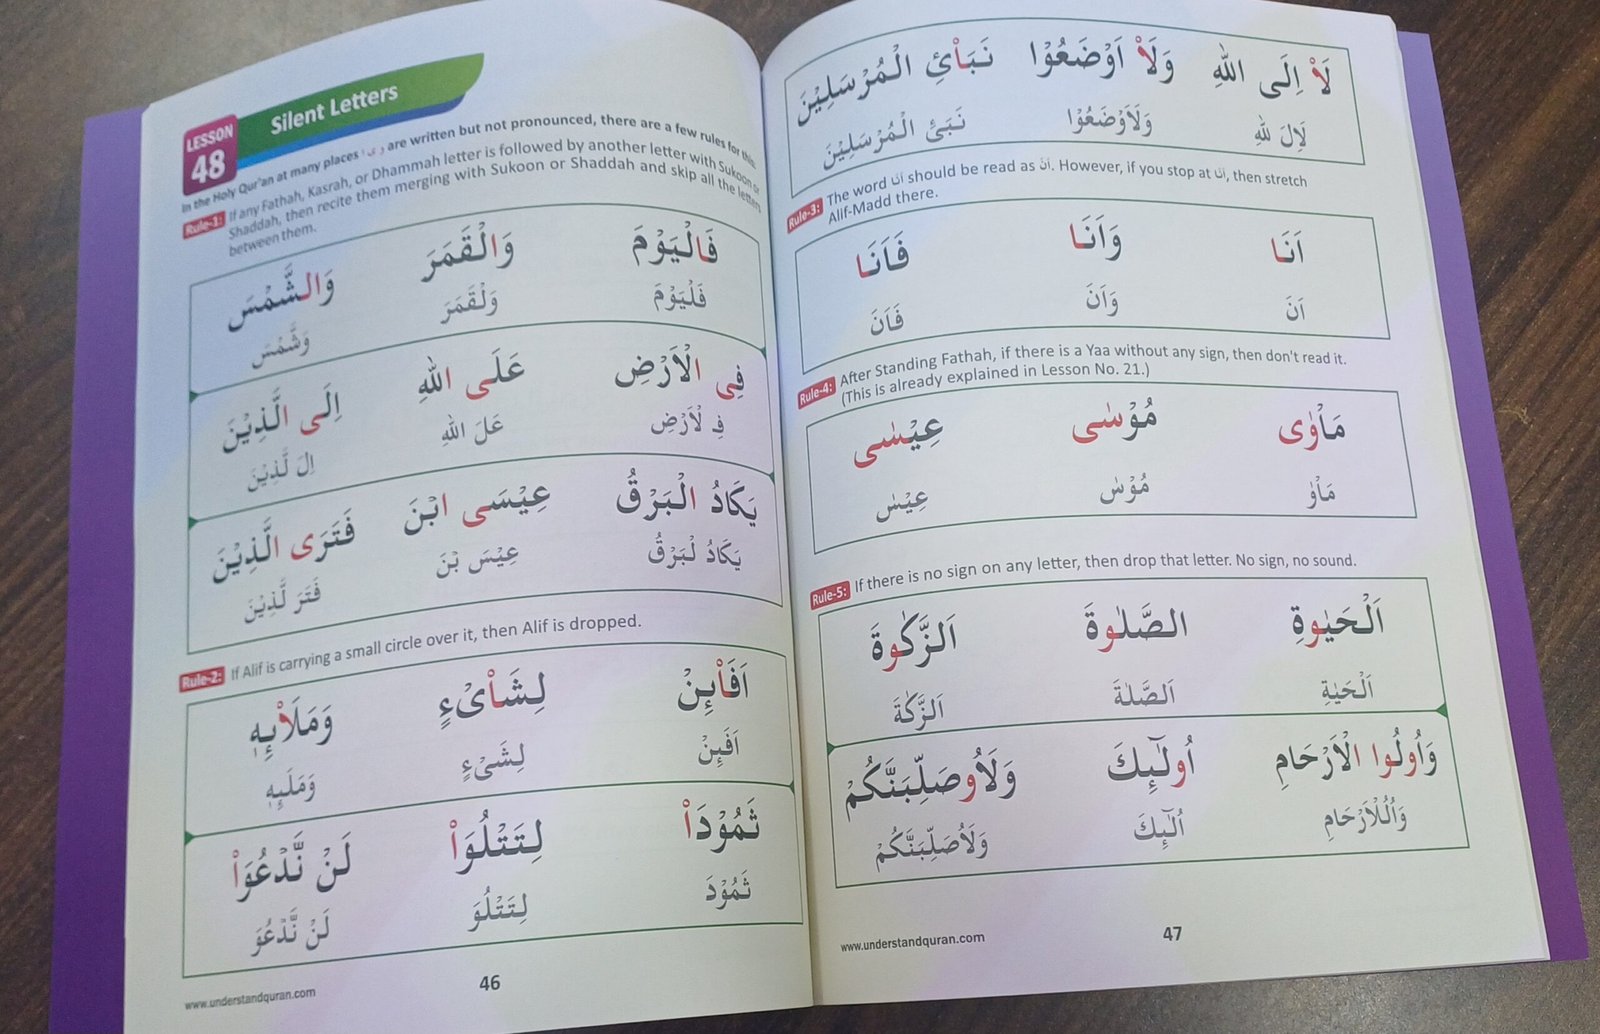 LESSON
48
Silent Letters
In the Holy Qur'an at many places و ی ا are written but not pronounced, there are a few rules for this.
Rule-1: If any Fathah, Kasrah, or Dhammah letter is followed by another letter with Sukoon or
Shaddah, then recite them merging with Sukoon or Shaddah and skip all the letters
between them.
فَالْيَوْمَ وَالْقَمَرَ وَالشَّمْسَ
فَلْيَوْمَ وَلْقَمَرَ وَشَّمْسَ
فِی الْاَرْضِ عَلَی اللّٰهِ اِلَی الَّذِيْنَ
فِ لْاَرْضِ عَلَ اللّٰهِ اِلَ لَّذِيْنَ
يَكَادُ الْبَرْقُ عِيْسَی ابْنَ فَتَرَی الَّذِيْنَ
يَكَادُ لْبَرْقُ عِيْسَ بْنَ فَتَرَ لَّذِيْنَ
Rule-2: If Alif is carrying a small circle over it, then Alif is dropped.
اَفَا۟ئِنْ لِشَا۟یْءٍ وَمَلَا۟ئِهٖ
اَفَئِنْ لِشَیْءٍ وَمَلَئِهٖ
ثَمُوْدَا۟ لِتَتْلُوَا۟ لَنْ نَّدْعُوَا۟
ثَمُوْدَ لِتَتْلُوَ لَنْ نَّدْعُوَ
www.understandquran.com
46
لَا۟ اِلَی اللّٰهِ وَلَا۟ اَوْضَعُوْا نَبَا۟ئِ الْمُرْسَلِيْنَ
لَاِلَ لّٰهِ وَلَاَوْضَعُوْا نَبَئِ الْمُرْسَلِيْنَ
Rule-3: The word اَنَا should be read as اَنَ. However, if you stop at اَنَا, then stretch
Alif-Madd there.
اَنَا وَاَنَا فَاَنَا
اَنَ وَاَنَ فَاَنَ
Rule-4: After Standing Fathah, if there is a Yaa without any sign, then don't read it.
(This is already explained in Lesson No. 21.)
مَاْوٰی مُوْسٰی عِيْسٰی
مَاْوٰ مُوْسٰ عِيْسٰ
Rule-5: If there is no sign on any letter, then drop that letter. No sign, no sound.
اَلْحَيٰوةِ الصَّلٰوةَ اَلزَّكٰوةَ
اَلْحَيٰةِ اَلصَّلٰةَ اَلزَّكٰةَ
وَاُولُوا الْاَرْحَامِ اُولٰٓئِكَ وَلَاُوصَلِّبَنَّكُمْ
وَاُلُلْاَرْحَامِ اُلٰٓئِكَ وَلَاُصَلِّبَنَّكُمْ
www.understandquran.com
47